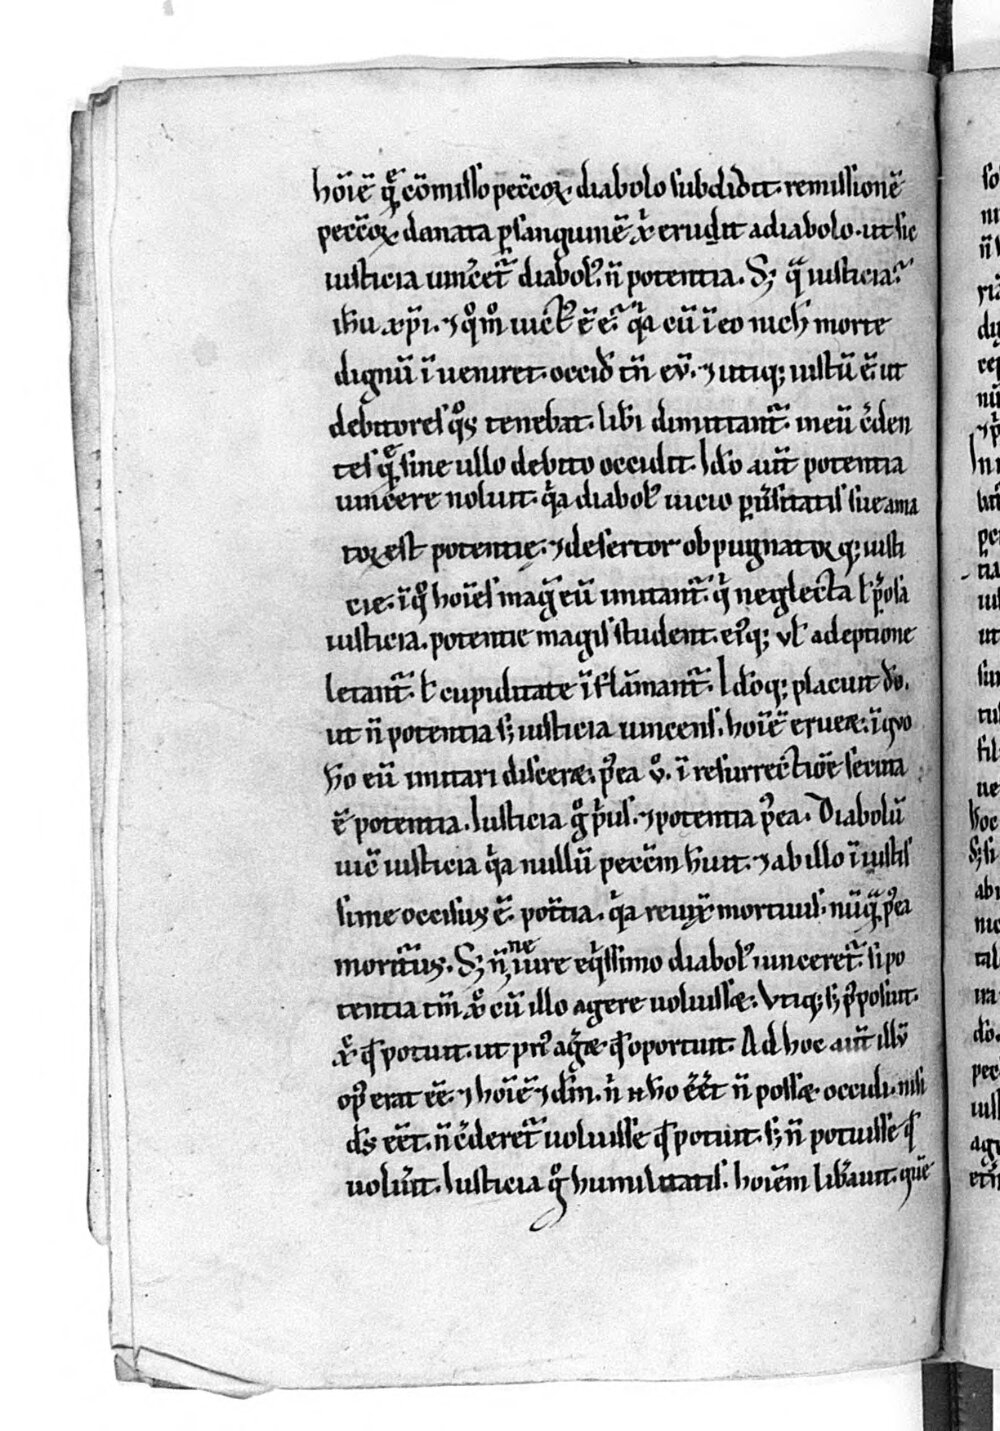 hoı̄ē q̄ cōmisso pecc̄oꝝ diabolo subdidit. remissionē
pecc̄oꝝ donata ꝑ sanguinē xp̄i erudit a diabolo. ut sic
iusticia uincer̄et diabol᷒. n̄ potentia. Sꝫ q̄ iusticia?
ih̄u xp̄i. ⁊ qͦm̊ uict᷒ ē? qͥa cū ī eo nich̄ morte
dignū īueniret. occid̄ tn̄ eū. ⁊ utiqꝫ iustū ē ut
debitores qͦs tenebat. lib̄i dimittant᷑. in eū c̄den
tes q̄ sine ullo debito occidit. Ido aut̄ potentia
uincere noluit. qͥa diabol᷒ uicio ꝑu̾sitatis sue ama
tor est potentię. ⁊ desertor obpugnatorqꝫ iusti
cie. ī qͦ hoı̄es mag̾ eū imitant᷑. qͥ neglecta ł p̾osa
iusticia. potentie magis student. ei᷒qꝫ uł adeptione
letant᷑. ł cupiditate īflāmant᷑. Idoqꝫ placuit dō.
ut n̄ potentia sꝫ iusticia uincens. hoı̄ē eruerꝫ. ī quo
ho eū imitari disceret. p᷒ea u̾o ī resurrectiōe secuta
ē potentia. Iusticia gͦ p̾us. ⁊ potentia p᷒ea. Diabolū
uic̄ iusticia qͥa nullū pecc̄m h̄uit. ⁊ ab illo īiustis
sime occisus ē. pot̄tia. qͥa reuixͥ mortuus. nūqͣ p᷒ea
moritur᷒. Sꝫ n̄ne iure eqͥssimo diabol᷒ uinceret᷑. si po
tentia tm̄ xp̄c cū illo agere uoluisset. Vtiqꝫ sꝫ p᷒posuit.
xp̄c qd̄ potuit. ut pri᷒ ageret qd̄ oportuit. Ad hoc aut̄ illū
op᷒ erat eē ⁊ hoı̄ē ⁊ dm̄. n̾ n̄ ho eēt n̄ posset occidi. nisi
ds̄ eēt. n̄ c̾deret᷑ uoluisse qd̄ potuit. sꝫ n̄ potuisse qd̄
uoluit. Iusticia gͦ humilitatis. hoı̄em lib̾auit. quē